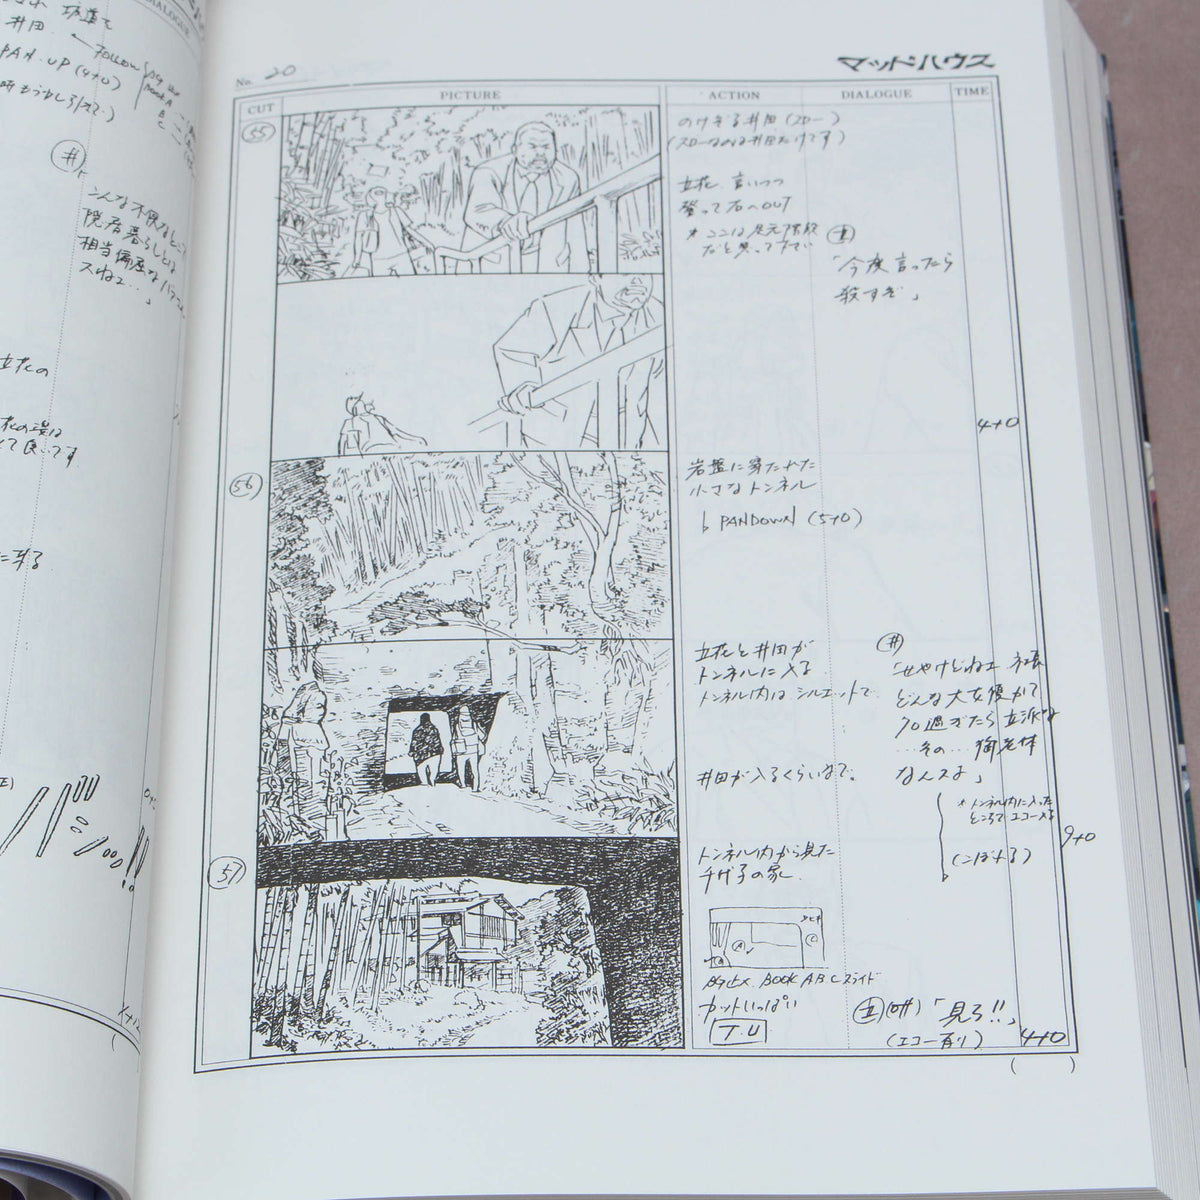 DIALOGUE
井田
FOLLOW
PAN.UP (4+0)
井
こんな不便なところで
隠居暮らしとは
相当偏屈な
スねェ…」
立花の
に来る
No. 20
マッドハウス
CUT
PICTURE
ACTION
DIALOGUE
TIME
55
のけぞる井田(スロー)
(スローなのは井田だけです)
立花、言いつつ
登って右へOUT
*ここは足元階段
だと思って下さい
立
「今度言ったら
殺すぞ」
4+0
56
岩盤に穿たれた
小さなトンネル
PANDOWN (5+0)
立花と井田が
トンネルに入る
トンネル内はシルエットで
井田が入るくらいまで。
井
「せやけどねェ 社長
どんな大女優かて
70過ぎたら立派な
…その… 御老体
なんスよ」
*トンネル内に入った
ところでエコー入る
(こぼれる)
9+0
57
トンネル内から見た
千代子の家
A
C
BOOK ABCスライド
カットいっぱい
T.U
立(off)「見ろ!!」
(エコー有り)
4+0
( )